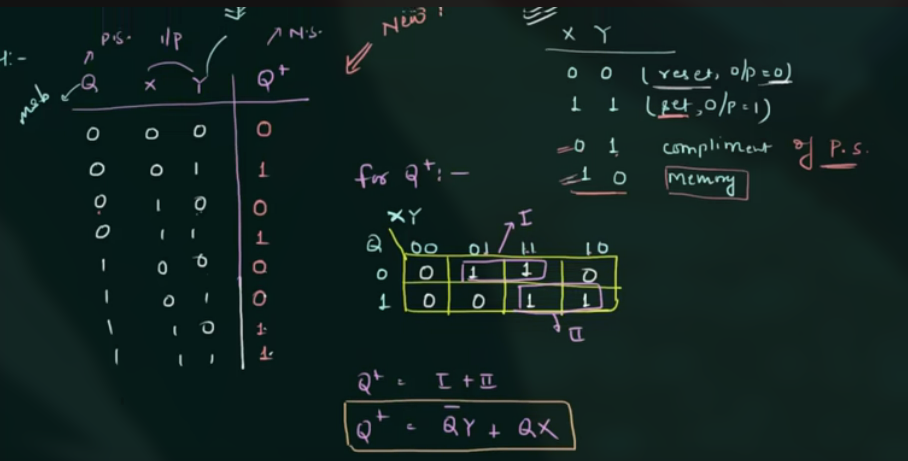 New :
P.S. i/p N.S.
msb Q X Y Q+
0 0 0 0
0 0 1 1
0 1 0 0
0 1 1 1
1 0 0 0
1 0 1 0
1 1 0 1
1 1 1 1
X Y
0 0 (reset, o/p = 0)
1 1 (set, o/p = 1)
0 1 compliment of P.S.
1 0 Memory
for Q+ : -
XY I
Q 00 01 11 10
0 0 1 1 0
1 0 0 1 1
II
Q+ = I + II
Q+ = Q̅Y + QX